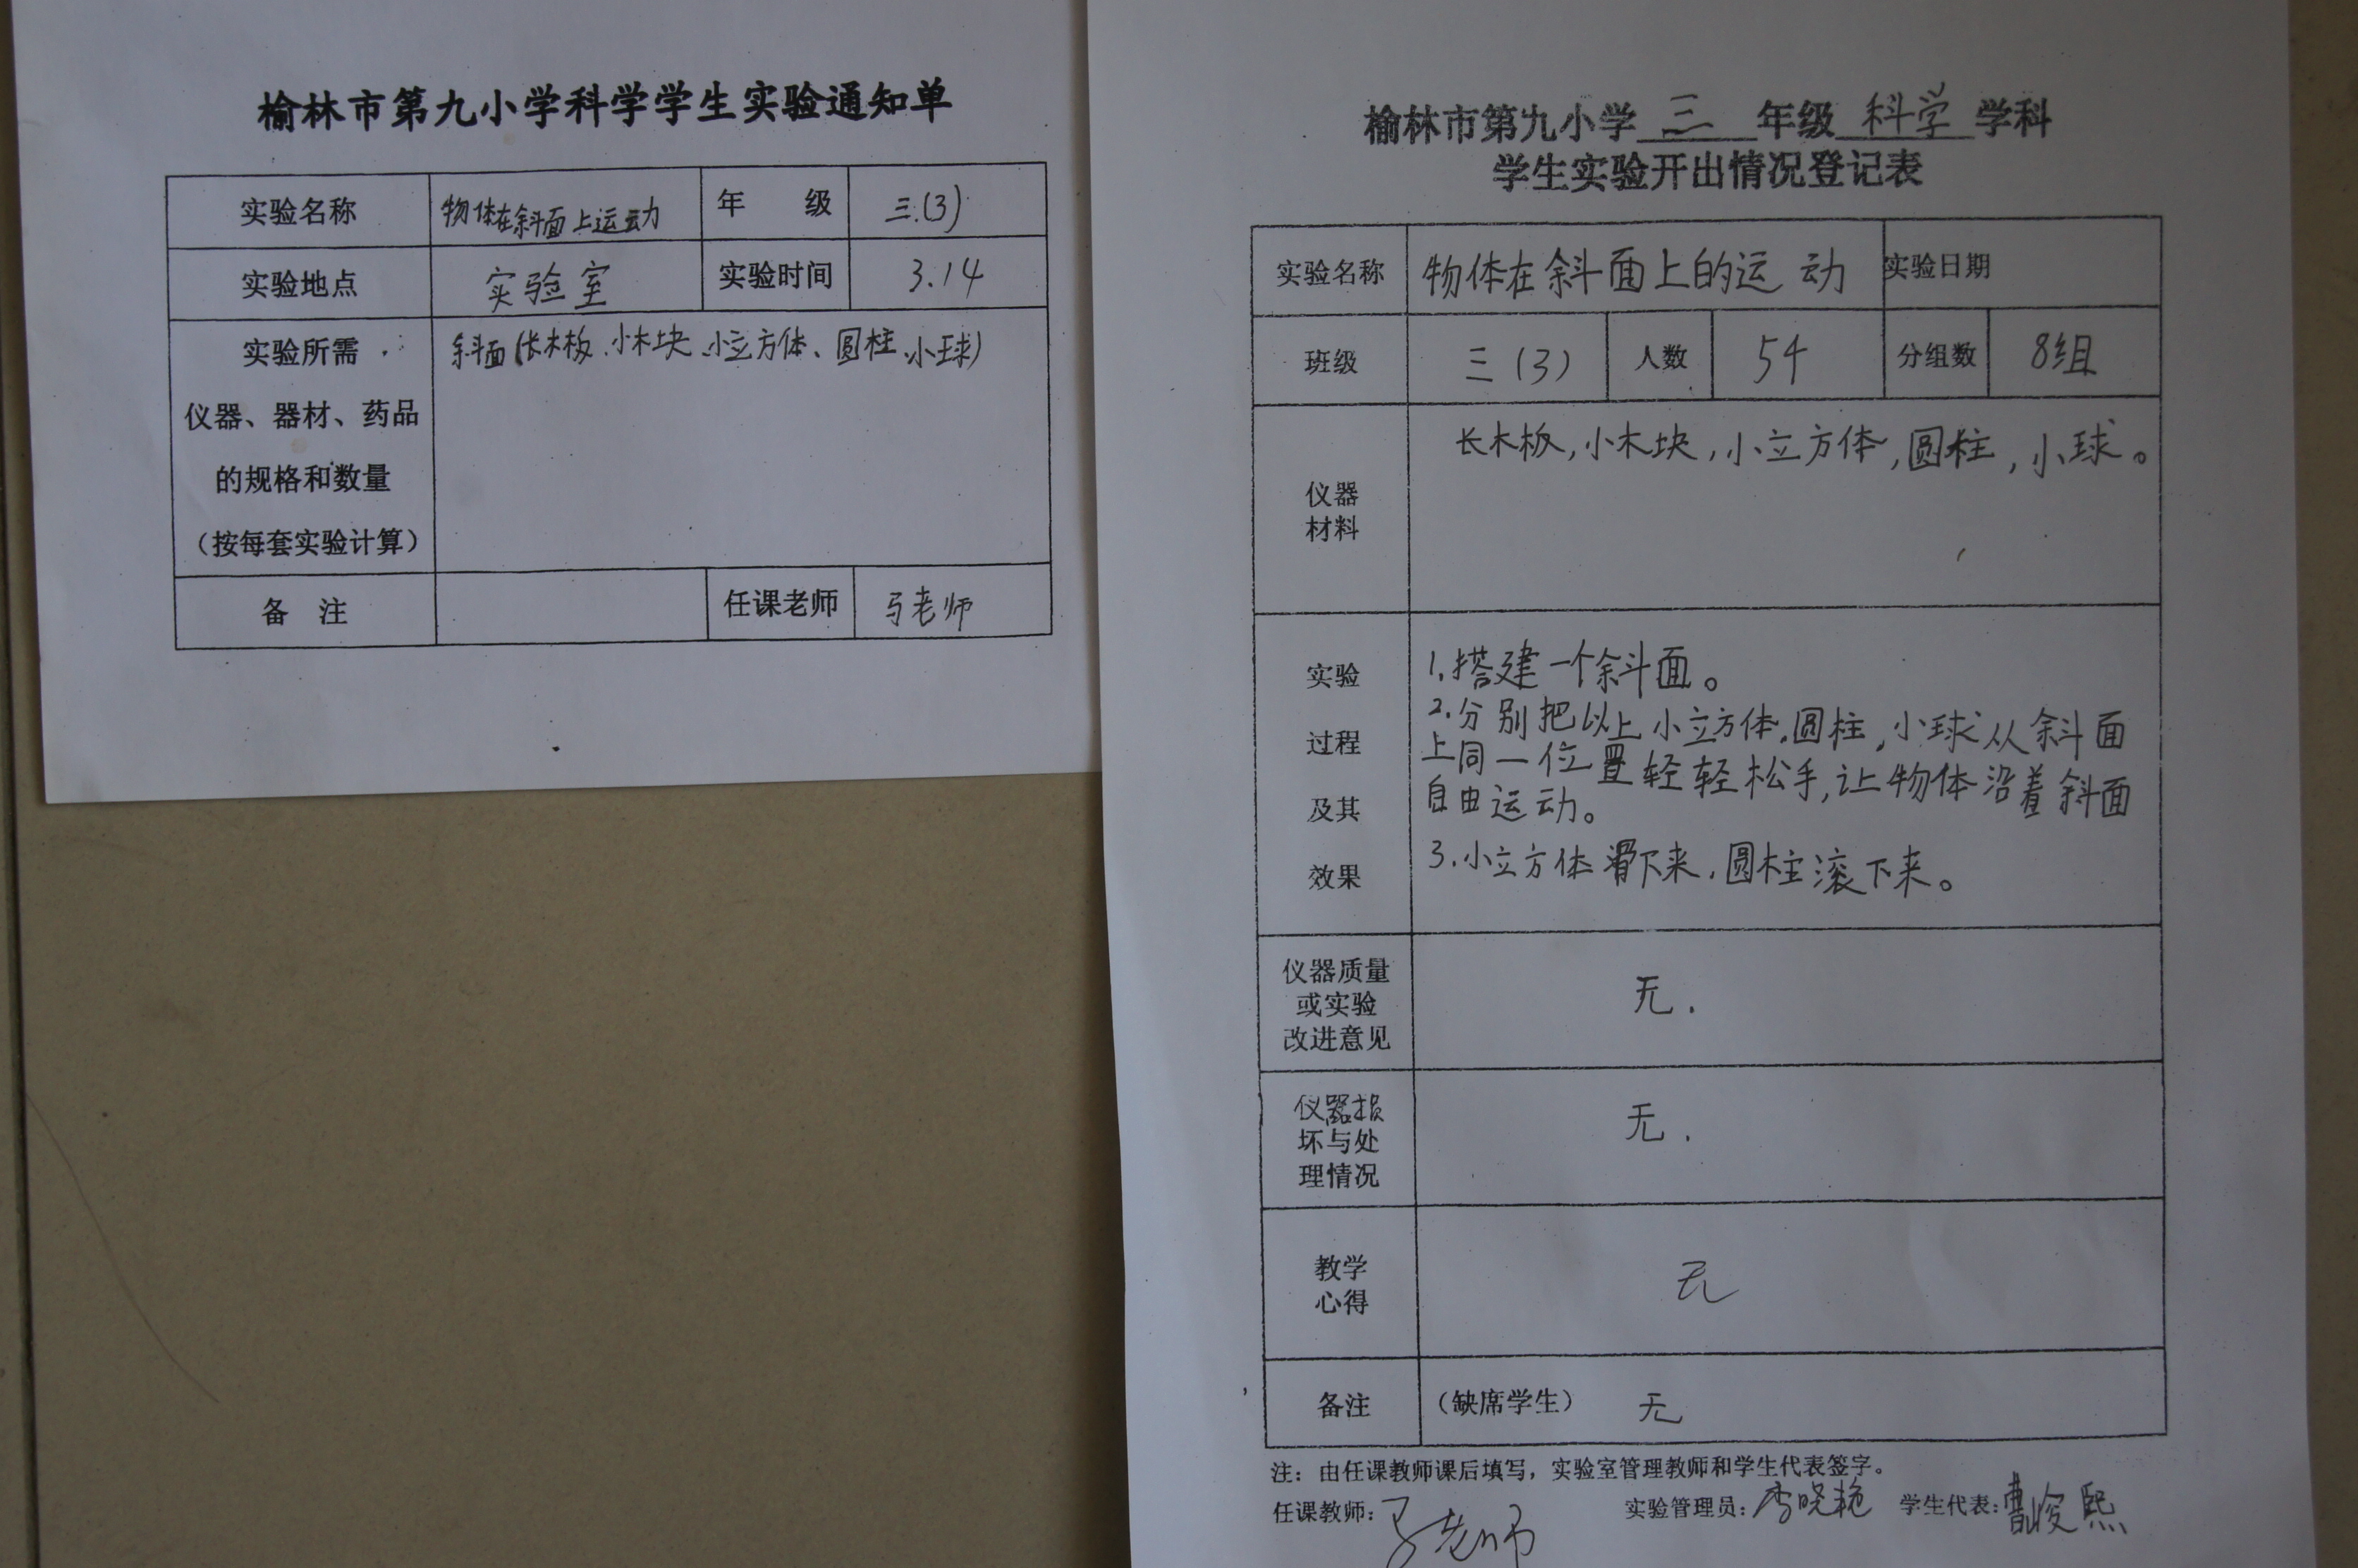 榆林市第九小学科学学生实验通知单
实验名称 物体在斜面上运动 年 级 三.(3)
实验地点 实验室 实验时间 3.14
实验所需 斜面(长木板、小木块、小立方体、圆柱、小球)
仪器、器材、药品
的规格和数量
(按每套实验计算)
备 注 任课老师 马老师
榆林市第九小学 三 年级 科学 学科
学生实验开出情况登记表
实验名称 物体在斜面上的运动 实验日期
班级 三(3) 人数 54 分组数 8组
长木板,小木块,小立方体,圆柱,小球。
仪器
材料
实验
过程
及其
效果
1.搭建一个斜面。
2.分别把以上小立方体.圆柱.小球从斜面
上同一位置轻轻松手,让物体沿着斜面
自由运动。
3.小立方体滑下来.圆柱滚下来。
仪器质量
或实验
改进意见
无.
仪器损
坏与处
理情况
无.
教学
心得
无
备注 (缺席学生) 无
注:由任课教师课后填写,实验室管理教师和学生代表签字。
任课教师:马老师 实验管理员:李晓艳 学生代表:曹峻熙